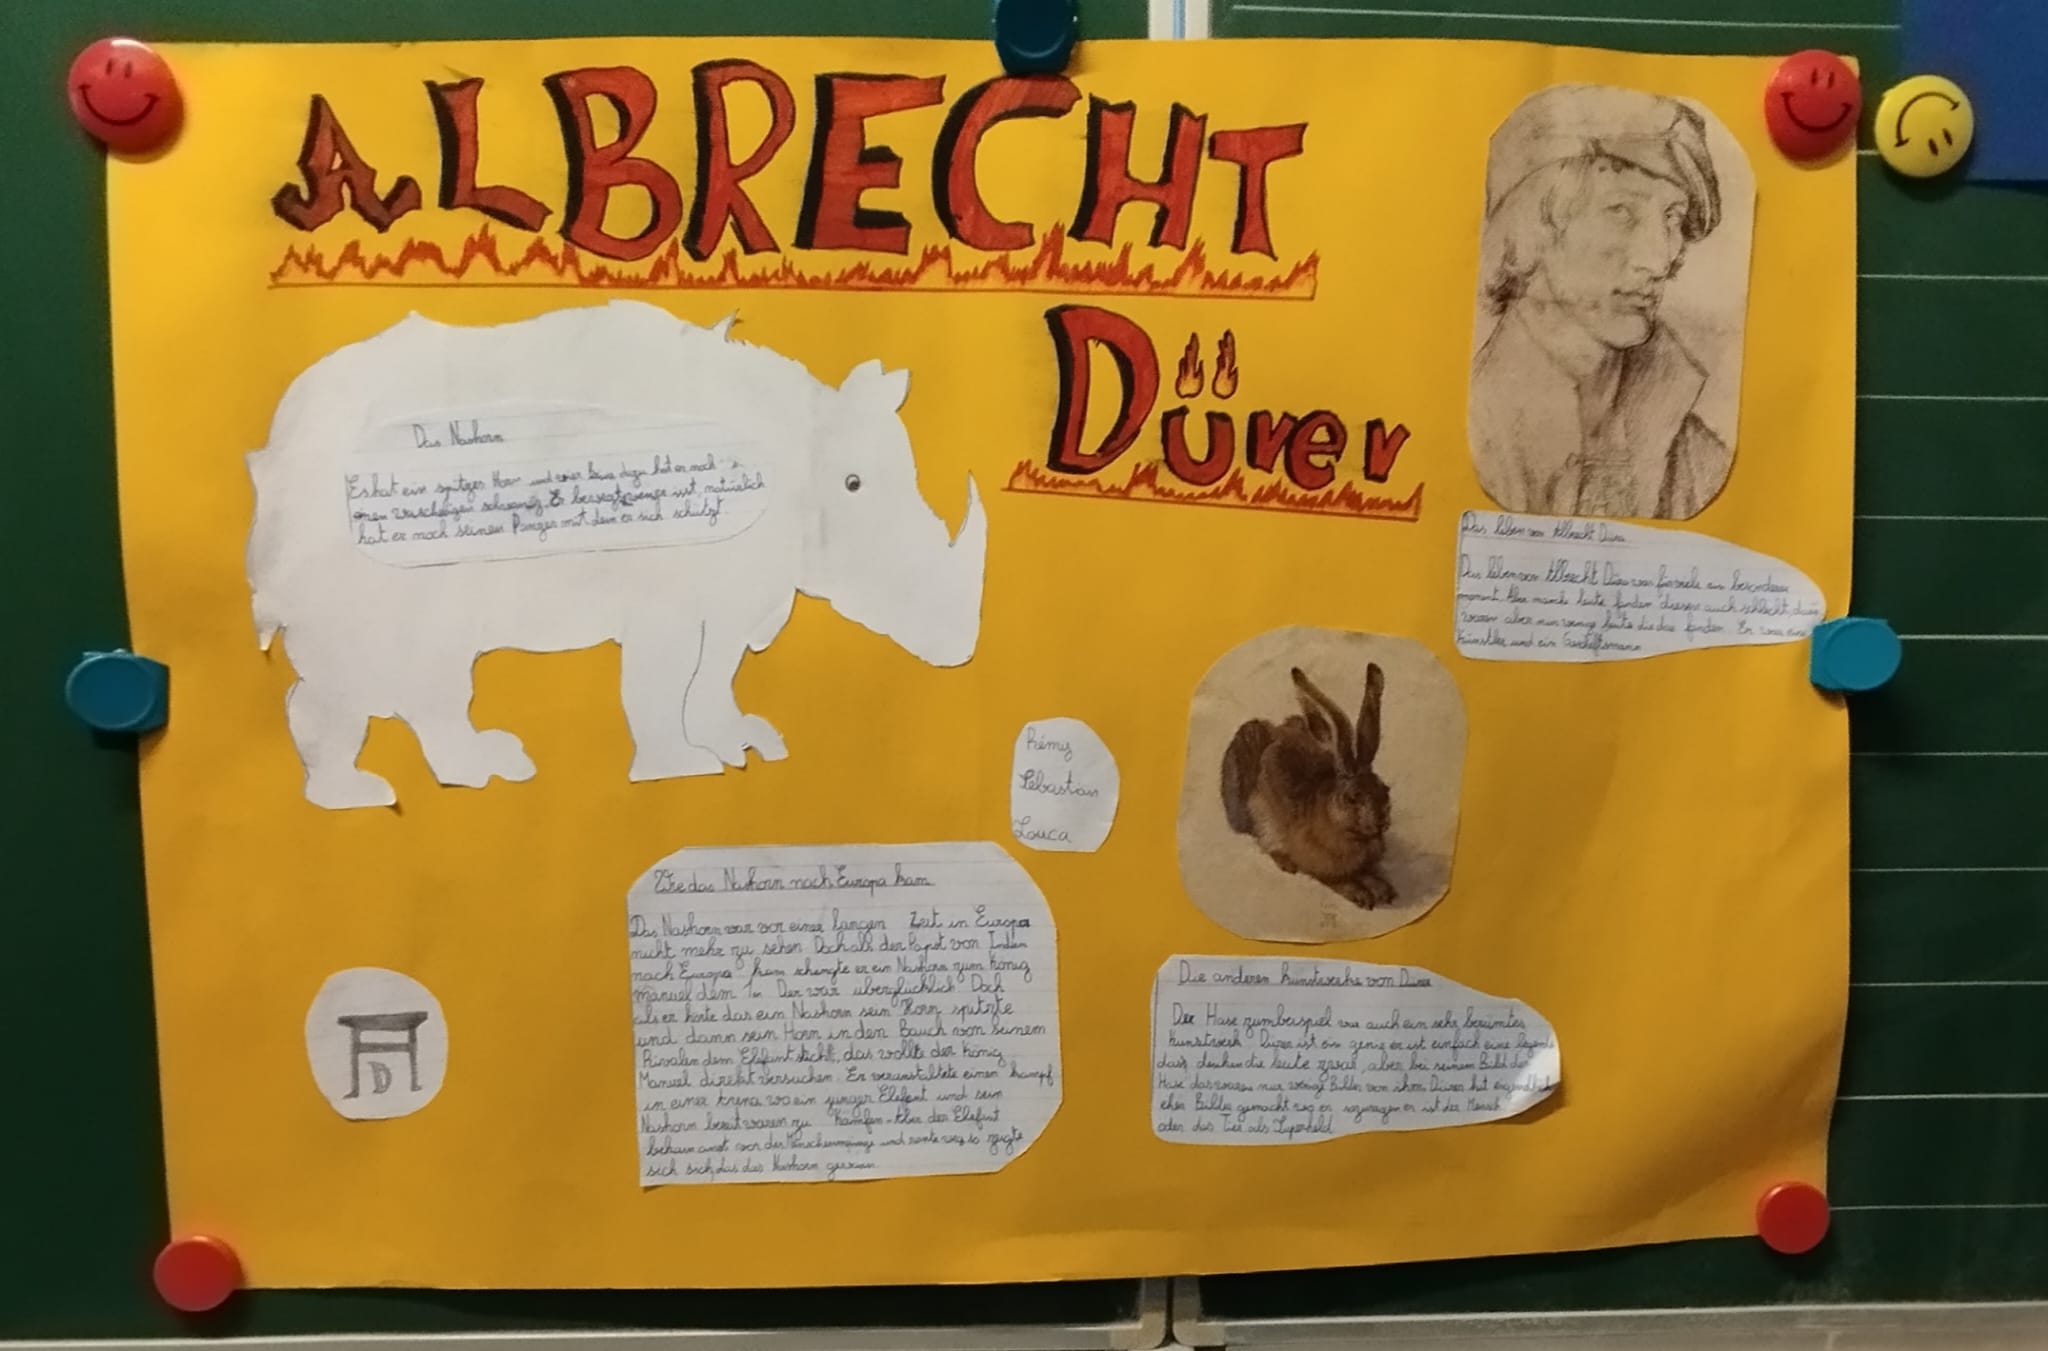 ALBRECHT
Dürer
Das Nashorn
Es hat ein spitzes Horn und vier Beine dazu hat er noch
einen
hat er noch seinen Panzer mit dem er sich schützt
Das leben von Albrecht Dürer
Das leben von Albrecht Dürer war für viele ein besonderer
moment. Aber manche leute fanden dieses auch schlecht, dass
waren aber nur wenige leute die das fanden. Er war ein
Künstler und ein Geschäftsmann
Rémy
Sebastian
Louca
Wie das Nashorn nach Europa kam
Das Nashorn war vor einer langen Zeit in Europa
nicht mehr zu sehen Doch als der Papst von Indien
nach Europa kam schengte er ein Nashorn zum König
manuel dem 1. Der war überglücklich Doch
als er hörte das ein Nashorn sein Horn spitzte
und dann sein Horn in den Bauch von seinem
Rivalen dem Elefant sticht, das wollte der König
Manuel direkt versuchen. Er veranstaltete einen kampf
in einer Arena wo ein junger Elefant und sein
Nashorn bereit waren zu kämfen. Aber der Elefant
bekam angst vor der Menschenmenge und rante weg so zeigte
sich das das Nashorn gewann
AD
Die anderen Kunstwerke von Dürer
Der Hase zumbeispiel war auch ein sehr berümtes
Kunstwerk Dürer ist ein genie er ist einfach eine legende
dass denken die leute zwar, aber bei seinem Bild der
Hase das waren nur wenige Bilder von ihm Dürer hat eigendlich
eher Bilder gemacht wo er sozusagen er ist der Mensch
oder das Tier als Superheld